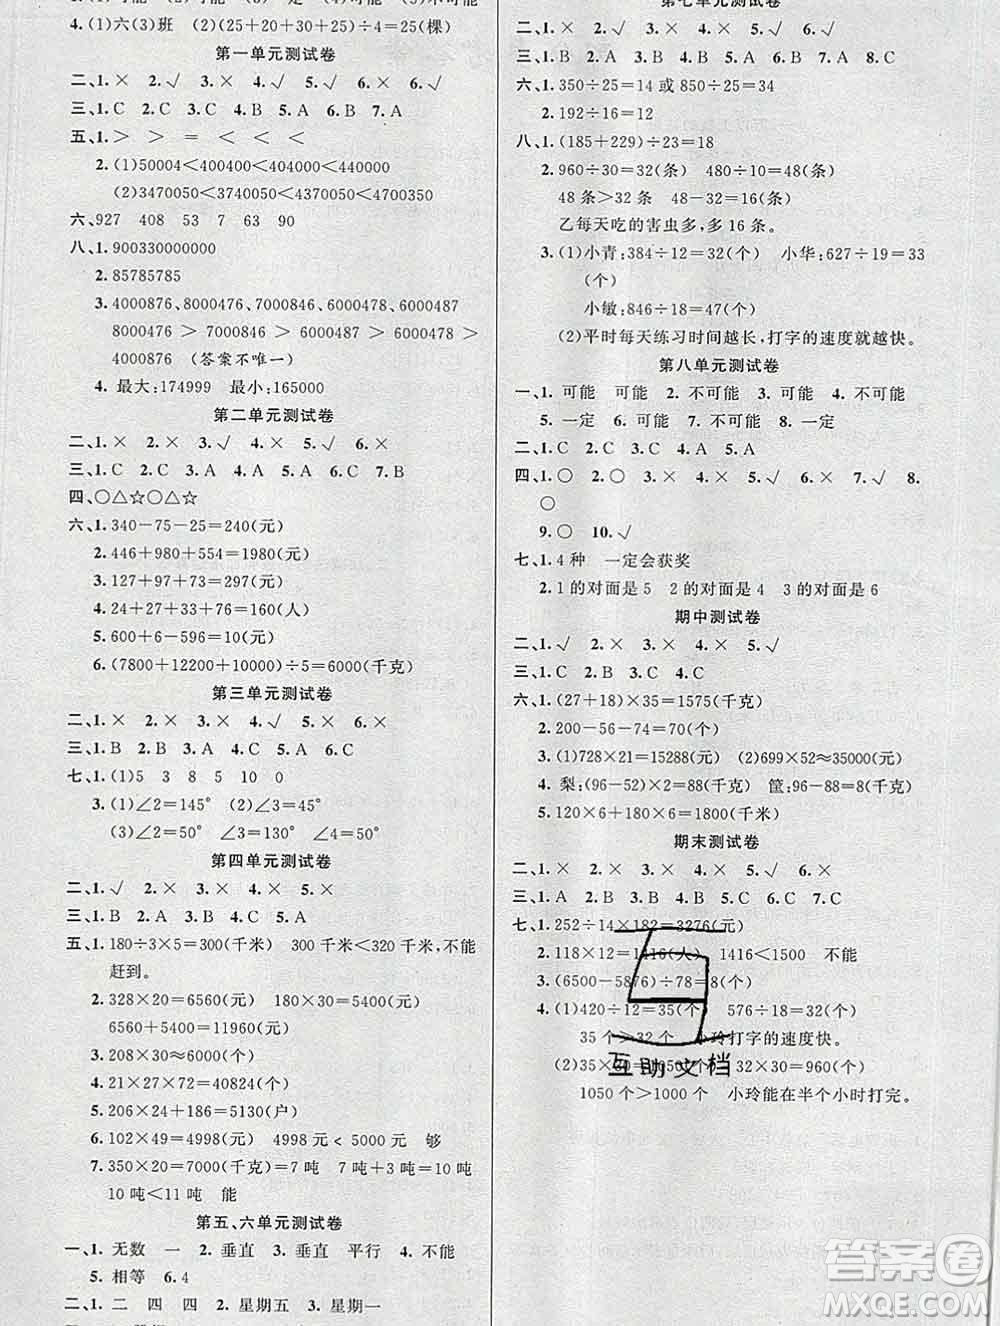 4.(1)六(3)班 (2)(25+20+30+25)÷4=25(棵)
第一单元测试卷
二、1.× 2.√ 3.× 4.× 5.× 6.√
三、1.C 2.C 3.C 4.B 5.A 6.A
五、1.> > = < < <
2.(1)50004<400400<404000<440000
(2)3470050<4300750<4370050<4700350
六、927 408 53 7 63 90
八、1.900330000000
2.85785785
3.4000876、8000476、7000846、6000487
8000476 > 7000846 > 6000487 >
4000876 (答案不唯一)
4.最大:174999 最小:165000
第二单元测试卷
二、1.× 2.× 3.√ 4.× 5.√ 6.×
三、1.C 2.C 3.A 4.A 5.A 6.C 7.B
四、○△☆○△☆
六、1.340-75-25=240(元)
2.446+980+554=1980(元)
3.127+97+73=297(元)
4.24+27+33+76=160(人)
5.600+6-596=10(元)
6.(7800+12200+10000)÷5=6000(千克)
第三单元测试卷
二、1.× 2.√ 3.√ 4.× 5.× 6.×
三、1.B 2.B 3.A 4.C 5.A 6.B
七、1.(1)5 3 8 5 10 0
3.(1)∠2=145° (2)∠3=45°
(3)∠2=50° ∠3=130° ∠4=50°
第四单元测试卷
二、1.√ 2.× 3.× 4.× 5.√ 6.×
三、1.B 2.A 3.B 4.C 5.A
五、1.180÷3×5=300(千米) 300千米<320千米,不能
赶到。
2.328×20=6560(元) 180×30=5400(元)
6560+5400=11960(元)
3.208×30≈6000(个)
4.21×27×72=40824(个)
5.206×24+186=5130(户)
6.102×49=4998(元) 4998元<5000元 够
7.350×20=7000(千克)=7吨 7吨+3吨=10吨
10吨<11吨 能
第五、六单元测试卷
一、1.无数 一 2.垂直 3.垂直 平行 4.不能
5.相等 6.4
二、1.二 四 四 2.星期五 3.星期一
第七单元测试卷
二、1.√ 2.× 3.√ 4.× 5.√ 6.× 7.√
三、1.B 2.A 3.B 4.C 5.B 6.B 7.A 8.C
六、1.350÷25=14或850÷25=34
2.192÷16=12
八、1.(185+229)÷23=18
2.960÷30=32(条) 480÷10=48(条)
48条>32条 48-32=16(条)
乙每天吃的害虫多,多16条。
3.(1)小青:384÷12=32(个) 小华:627÷19=33
(个)
小敏:846÷18=47(个)
(2)平时每天练习时间越长,打字的速度就越快。
第八单元测试卷
一、1.可能 可能 2.不可能 3.可能 4.不可能
5.一定 6.可能 7.不可能 8.一定
二、1.C 2.B 3.C 4.B 5.A 6.A
四、1.○ 2.○ 3.√ 4.√ 5.√ 6.× 7.√ 8.
○
9.○ 10.√
七、1.4种 一定会获奖
2.1的对面是5 2的对面是4 3的对面是6
期中测试卷
二、1.√ 2.× 3.× 4.× 5.√
三、1.C 2.B 3.C 4.C 5.A
六、1.(27+18)×35=1575(千克)
2.200-56-74=70(个)
3.(1)728×21=15288(元) (2)699×52≈35000(元)
4.梨:(96-52)×2=88(千克) 筐:96-88=8(千克)
5.120×6+180×6=1800(千米)
期末测试卷
二、1.× 2.× 3.√ 4.× 5.× 6.√
三、1.A 2.B 3.A 4.B 5.B 6.C
七、1.252÷14×182=3276(元)
2.118×12=1416(人) 1416<1500 不能
3.(6500-5876)÷78=8(个)
4.(1)420÷12=35(个) 576÷18=32(个)
35个>32个 小玲打字的速度快。
(2)35×30=1050(个) 32×30=960(个)
1050个>1000个 小玲能在半个小时打完。
互助文档
答案卷
MXQE.COM